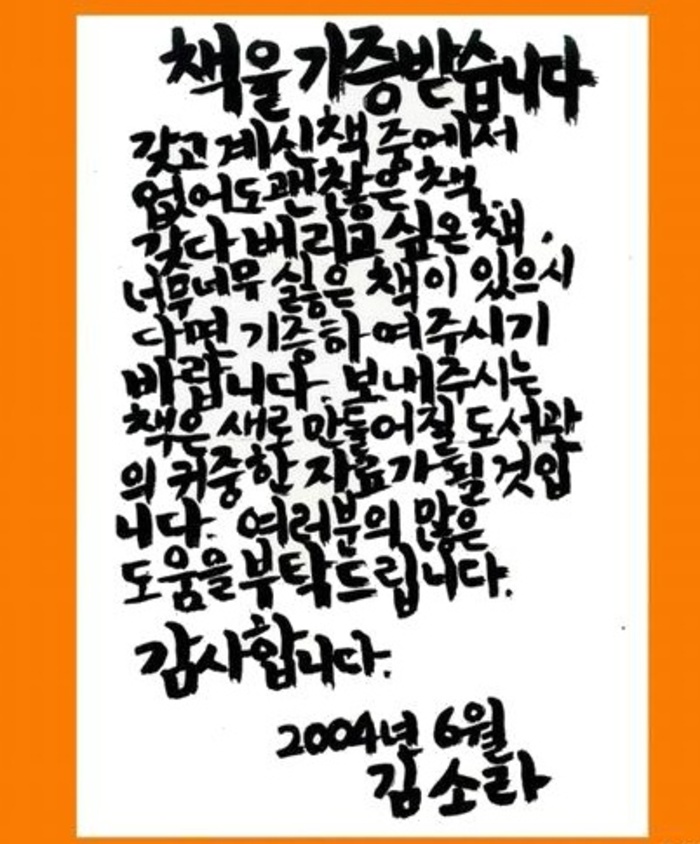 책을 기증받습니다
갖고 계신 책 중에서
없어도 괜찮은 책
갖다 버리고 싶은 책.
너무너무 싫은 책이 있으시
다면 기증하여 주시기
바랍니다. 보내주시는
책은 새로 만들어질 도서관
의 귀중한 자료가 될 것입
니다. 여러분의 많은
도움을 부탁드립니다.
감사합니다.
2004년 6월
김소라